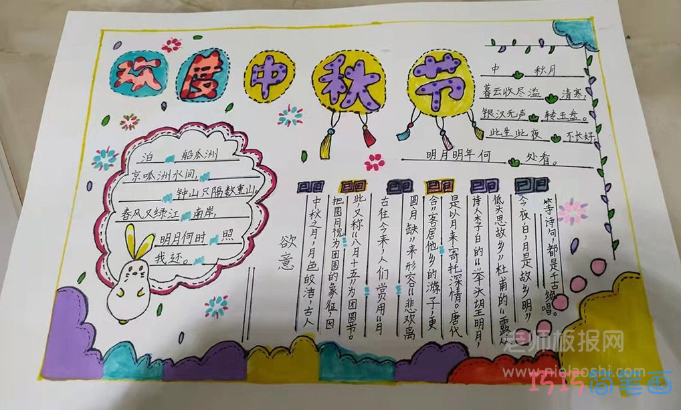 欢度中秋节
中 秋月
暮云收尽溢 清寒,
银汉无声 转玉盘。
此生此夜 不长好,
明月明年何 处看。
泊 船瓜洲
洲水间,
钟山只隔数重山,
春风又绿江 南岸,
明月何时 照
我还。
欲意
中秋之月,月色皎洁,古人
把圆月视为团圆的象征,因
此又称"八月十五"为团圆节。
古往今来,人们常用"月
圆月缺"来形容"悲欢离
合",客居他乡的游子,更
是以月来寄托深情。唐代
诗人李白的"举头望明月,
低头思故乡",杜甫的"露从
今夜白,月是故乡明"
等诗句,都是千古绝唱。
老师板报网
www.nielaoshi.com
1515简笔画